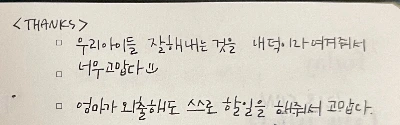 <THANKS>
□ 우리아이들 잘해내는 것을 내덕이라여겨줘서
□ 너무고맙다
□ 엄마가 외출해도 스스로 할일을 해줘서 고맙다.